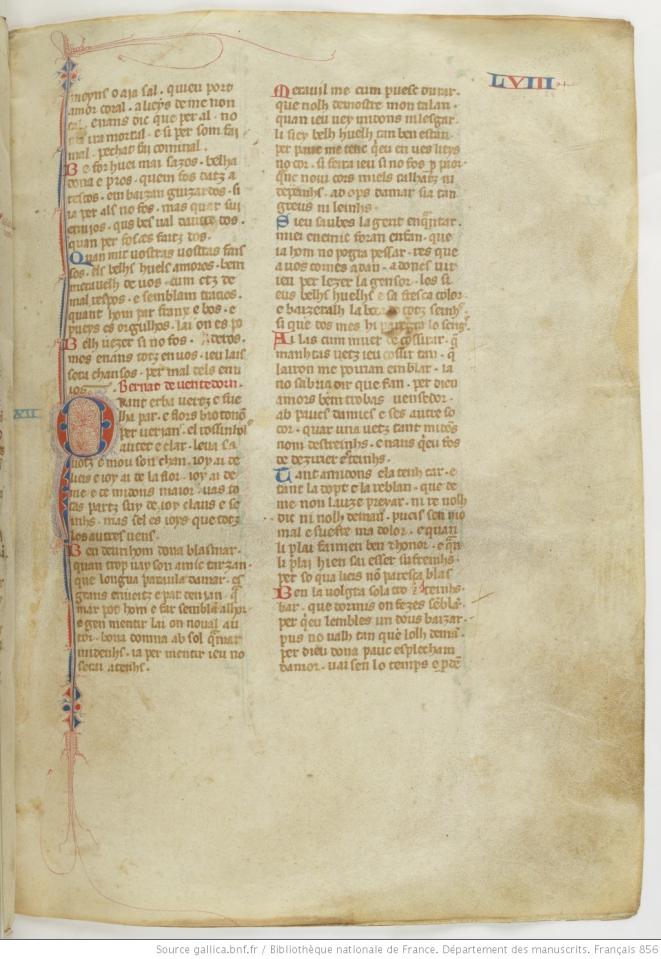 LVIII
moyns o aia sal . quieu port
amor coral . a lieys de me non
cal . enans dic que per al . no
mira mortal . e si per som fai
mal . pechat fai cominal .
Be for huei mai sazos . belha
dona e pros . quem fos datz a
rescos . em baizan guizardos . si
ia per als no fos . mas quar sui
enuios . qus bes val dautre dos .
quan per fosas faitz dos .
Quan mir vostras vostras fais
sos . els belhs huels amoros . bem
meravelh de vos . cum etz de
mal respos . e semblam tracios .
quant hom par franx e bos . e
pueys es orgulhos . lai on es po
Belh vezer si no fos . deros .
mos enans totz en vos . ieu lais
sera chansos . per mal dels en
ios .
Bernat de ventedorn .
XII
Quant erba vertz e fue
lha par . e flors broton en
per verian . el rossinhol
autet e clar . leva sa
votz e mou son chan . ioy ai de
lieis e ioy ai de la flor . ioy ai de
me e de midons maior . vas to
tas partz suy de ioy claus e se
inhs . mas sel es ioys que totz
los autres vens .
Ben deuri hom dona blasmar .
quan trop vay son amic tarzan .
que longua paraula damar . es
grans enueitz e par denian . q
mar pot hom e far semblan alhor .
e gen mentir lai on noal au
tor . bona domna ab sol q mar
mi denhs . ia per mentir ieu no
serai atenhs .
Meravil me cum puesc durar .
que nolh demostre mon talan .
quan ieu vey midons ni lesgar .
li siey belh huelh tan ben estan .
per pauc me tenc qeu en ves lieys
no cor . si feira ieu si no fos per paor .
que nouis cors miels talhatz ni
depenhs . ad ops damar sia tan
greus ni lenhs .
Sieu saubes la gent enqantar .
miei enemic foran enfan . que
ia hom no pogra pessar . res que
a vos tornes a dan . adones vir
ieu per lezer la gensor . los si
eus belhs huelhs e sa fresca color .
e baizeralh la boca de totz senhs
si que dos mes hi paregra lo senhs .
Ai las cum muer de cossirar . q
manhtas vetz ieu cossir tan . q
lairon me poirian emblar . ia
no sabria dir que fan . per dieu
amors ben trobas vensedor .
ab paucs damics e ses autre so
cor . quar una vetz tant midos
nom destrenhs . enans qeu fos
de dezirier estenhs .
Tant a midons e la tenh car . e
tant la dopt e la reblan . que de
me non lauze preyar . ni re nolh
dic ni nolh deman . pueis sen mo
mal e suefre ma dolor . e quan
li plai fai men ben et honor . e qan
li plai hi en sai esser sufrenhs .
per so qua lieis no paresca blas
tenhs .
Ben la volgra sola tro
bar . que dormis o n fezes semblan .
per qeu lembles un dous baizar .
pus no valh tan que lolh deman .
per dieu dona pauc esplecham
damor . vai sen lo temps e perdem
Source gallica.bnf.fr / Bibliothèque nationale de France. Département des manuscrits. Français 856